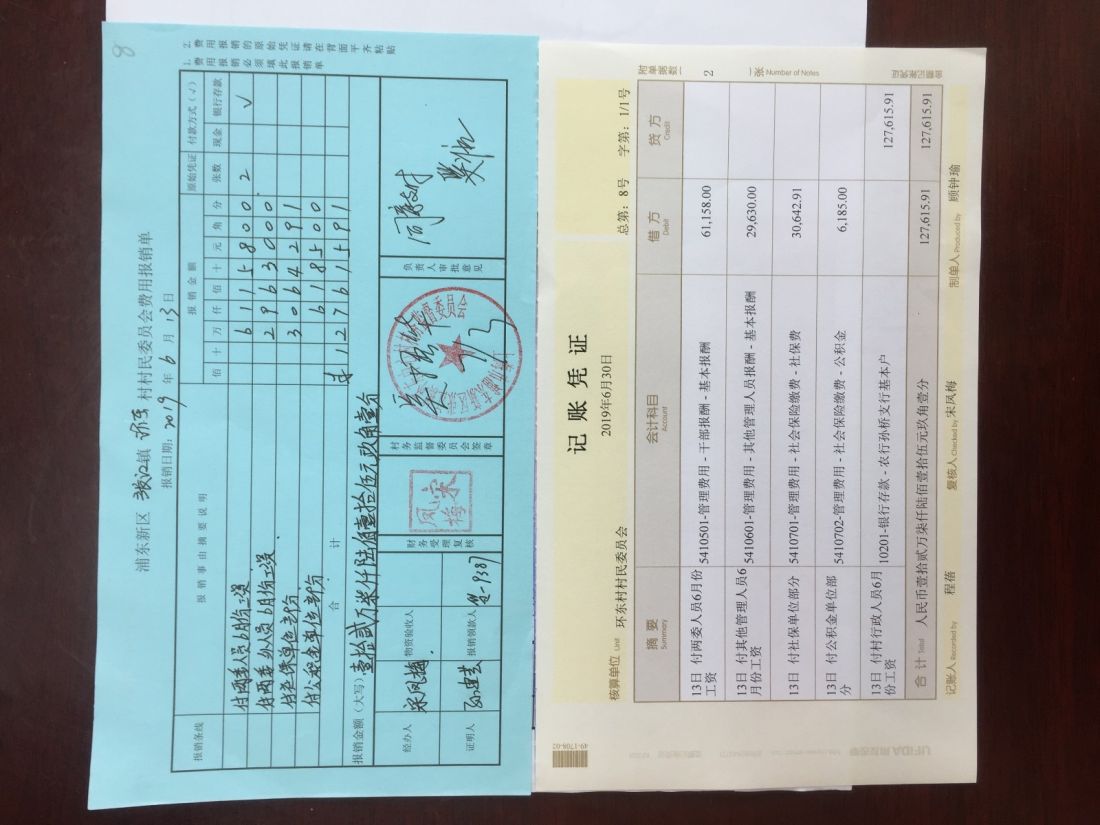 8
浦东新区 张江镇 环东 村村民委员会费用报销单
报销日期：2019年6月13日
1. 费用报销必须填此报销单
2. 费用报销的原始凭证请在背面平齐粘贴
报销条线 报销事由摘要说明 报销金额 原始凭证 付款方式（√）
佰 十 万 仟 佰 十 元 角 分 张数 现金 银行存款
付两委人员6月份工资 6115800 2 √
付两委外人员6月份工资 2963000
付社保单位部分 3064291
付公积金单位部分 618500
合计 12761591
报销金额（大写）壹拾贰万柒仟陆佰壹拾伍元玖角壹分
经办人 宋凤梅 物资验收人 财务受理复核 村务监督委员会签章 负责人审批意见 同意支付
宋凤梅
证明人 报销领款人
记账凭证
2019年6月30日
核算单位 Unit 环东村村民委员会 总第：8号 字第：1/1号
附单据数 2 张 Number of Notes
摘要 Summary 会计科目 Account 借方 Debit 贷方 Credit
13日 付两委人员6月份工资 5410501-管理费用 - 干部报酬 - 基本报酬 61,158.00
13日 付其他管理人员6月份工资 5410601-管理费用 - 其他管理人员报酬 - 基本报酬 29,630.00
13日 付社保单位部分 5410701-管理费用 - 社会保险缴费 - 社保费 30,642.91
13日 付公积金单位部分 5410702-管理费用 - 社会保险缴费 - 公积金 6,185.00
13日 付村行政人员6月份工资 10201-银行存款 - 农行孙桥支行基本户 127,615.91
合计 Total 人民币壹拾贰万柒仟陆佰壹拾伍元玖角壹分 127,615.91 127,615.91
记账人 Recorded by 程蓓 复核人 Checked by 宋凤梅 制单人 Produced by 顾钟瑜
49-1708-02
UFIDA